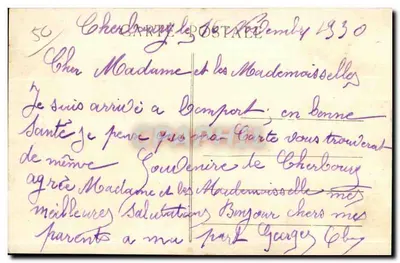 50
CARTE POSTALE
Cherbourg le 1930
Cher Madame et les Mademoisselles
Je suis arrivé a bomport, en bonne
Santé je pense que ma Carte vous trouverat
de même Souvenire de Cherbourg
agrée Madame et les Mademoisselle mes
meilleures salutations Bonjour chers mes
parents a ma part Georges